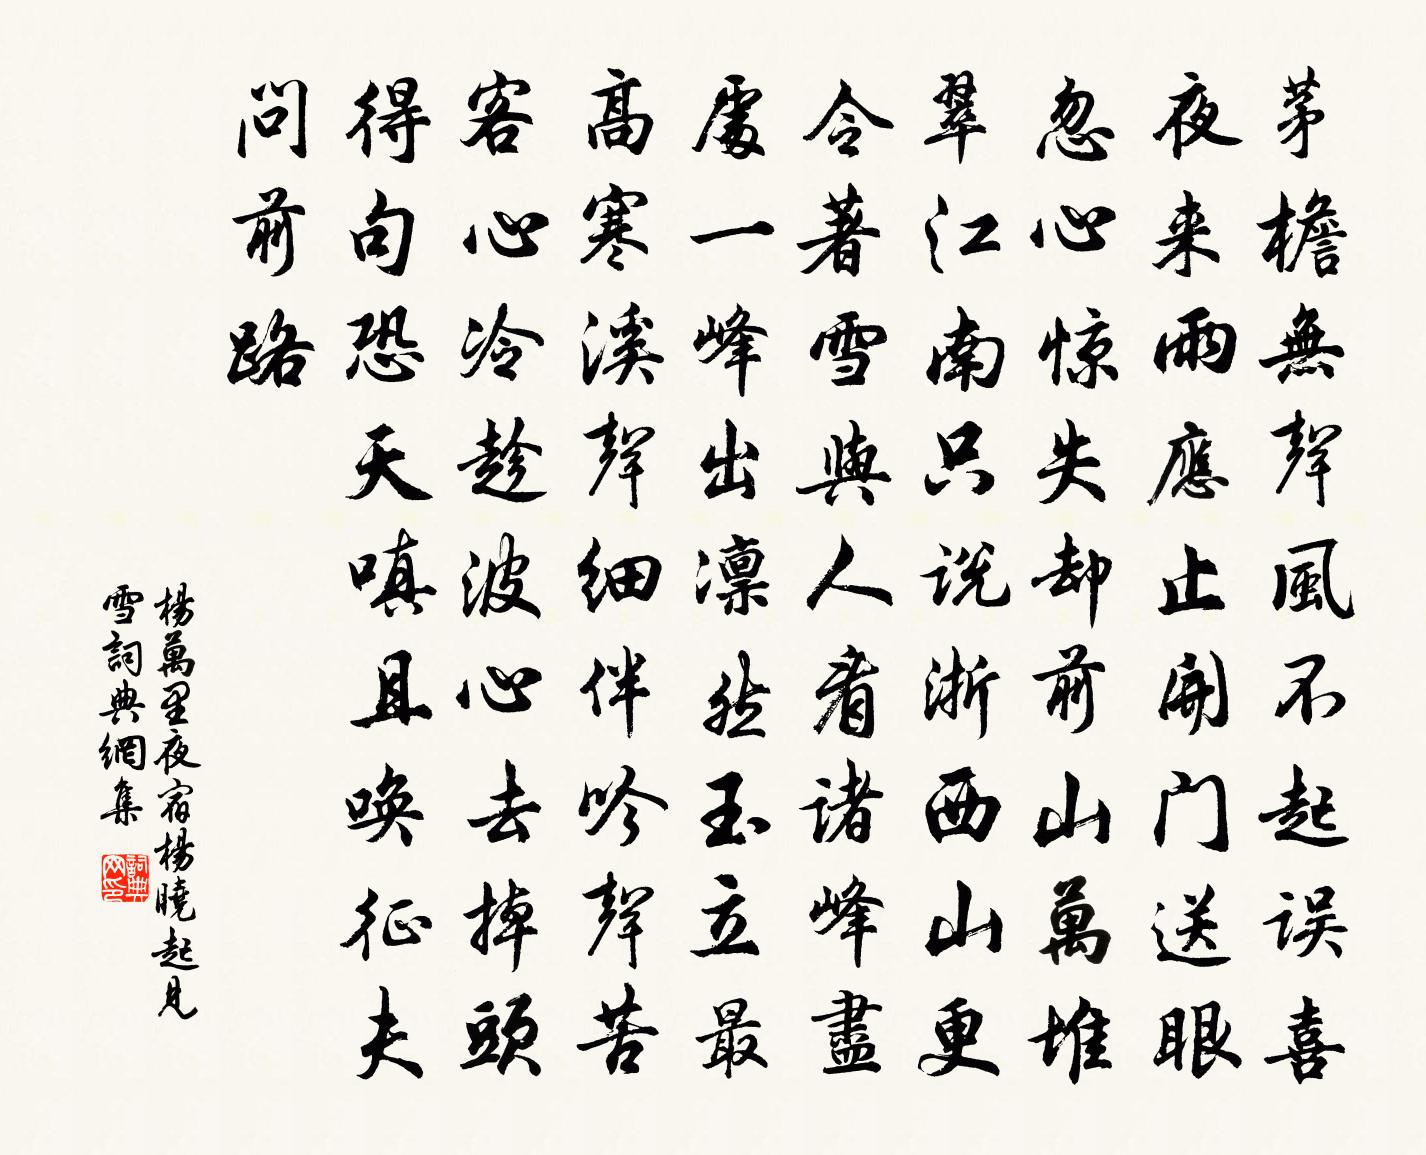 茅檐無聲風不起誤喜
夜来雨應止開门送眼
忽心惊失却前山萬堆
翠江南只説浙西山更
令著雪與人看诸峰盡
處一峰出凛然玉立最
高寒溪聲細伴吟聲苦
客心冷趁波心去掉頭
得句恐天嗔且唤征夫
问前路
楊萬里夜宿楊曉起見
雪詞典網集
詞典
网印